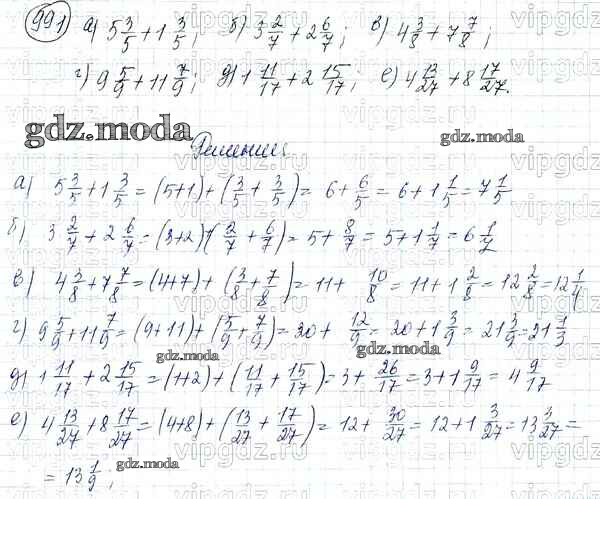 991 а) 5 3/5 + 1 3/5; б) 3 2/7 + 2 6/7; в) 4 3/8 + 7 7/8;
г) 9 5/9 + 11 7/9; д) 1 11/17 + 2 15/17; е) 4 13/27 + 8 17/27.
gdz.moda
gdz.moda
Решение
а) 5 3/5 + 1 3/5 = (5+1) + (3/5 + 3/5) = 6 + 6/5 = 6 + 1 1/5 = 7 1/5
б) 3 2/7 + 2 6/7 = (3+2) + (2/7 + 6/7) = 5 + 8/7 = 5 + 1 1/7 = 6 1/7
в) 4 3/8 + 7 7/8 = (4+7) + (3/8 + 7/8) = 11 + 10/8 = 11 + 1 2/8 = 12 2/8 = 12 1/4
г) 9 5/9 + 11 7/9 = (9+11) + (5/9 + 7/9) = 20 + 12/9 = 20 + 1 3/9 = 21 3/9 = 21 1/3
gdz.moda
gdz.moda
д) 1 11/17 + 2 15/17 = (1+2) + (11/17 + 15/17) = 3 + 26/17 = 3 + 1 9/17 = 4 9/17
е) 4 13/27 + 8 17/27 = (4+8) + (13/27 + 17/27) = 12 + 30/27 = 12 + 1 3/27 = 13 3/27 =
gdz.moda
= 13 1/9;
gdz.moda
vipgdz.ru